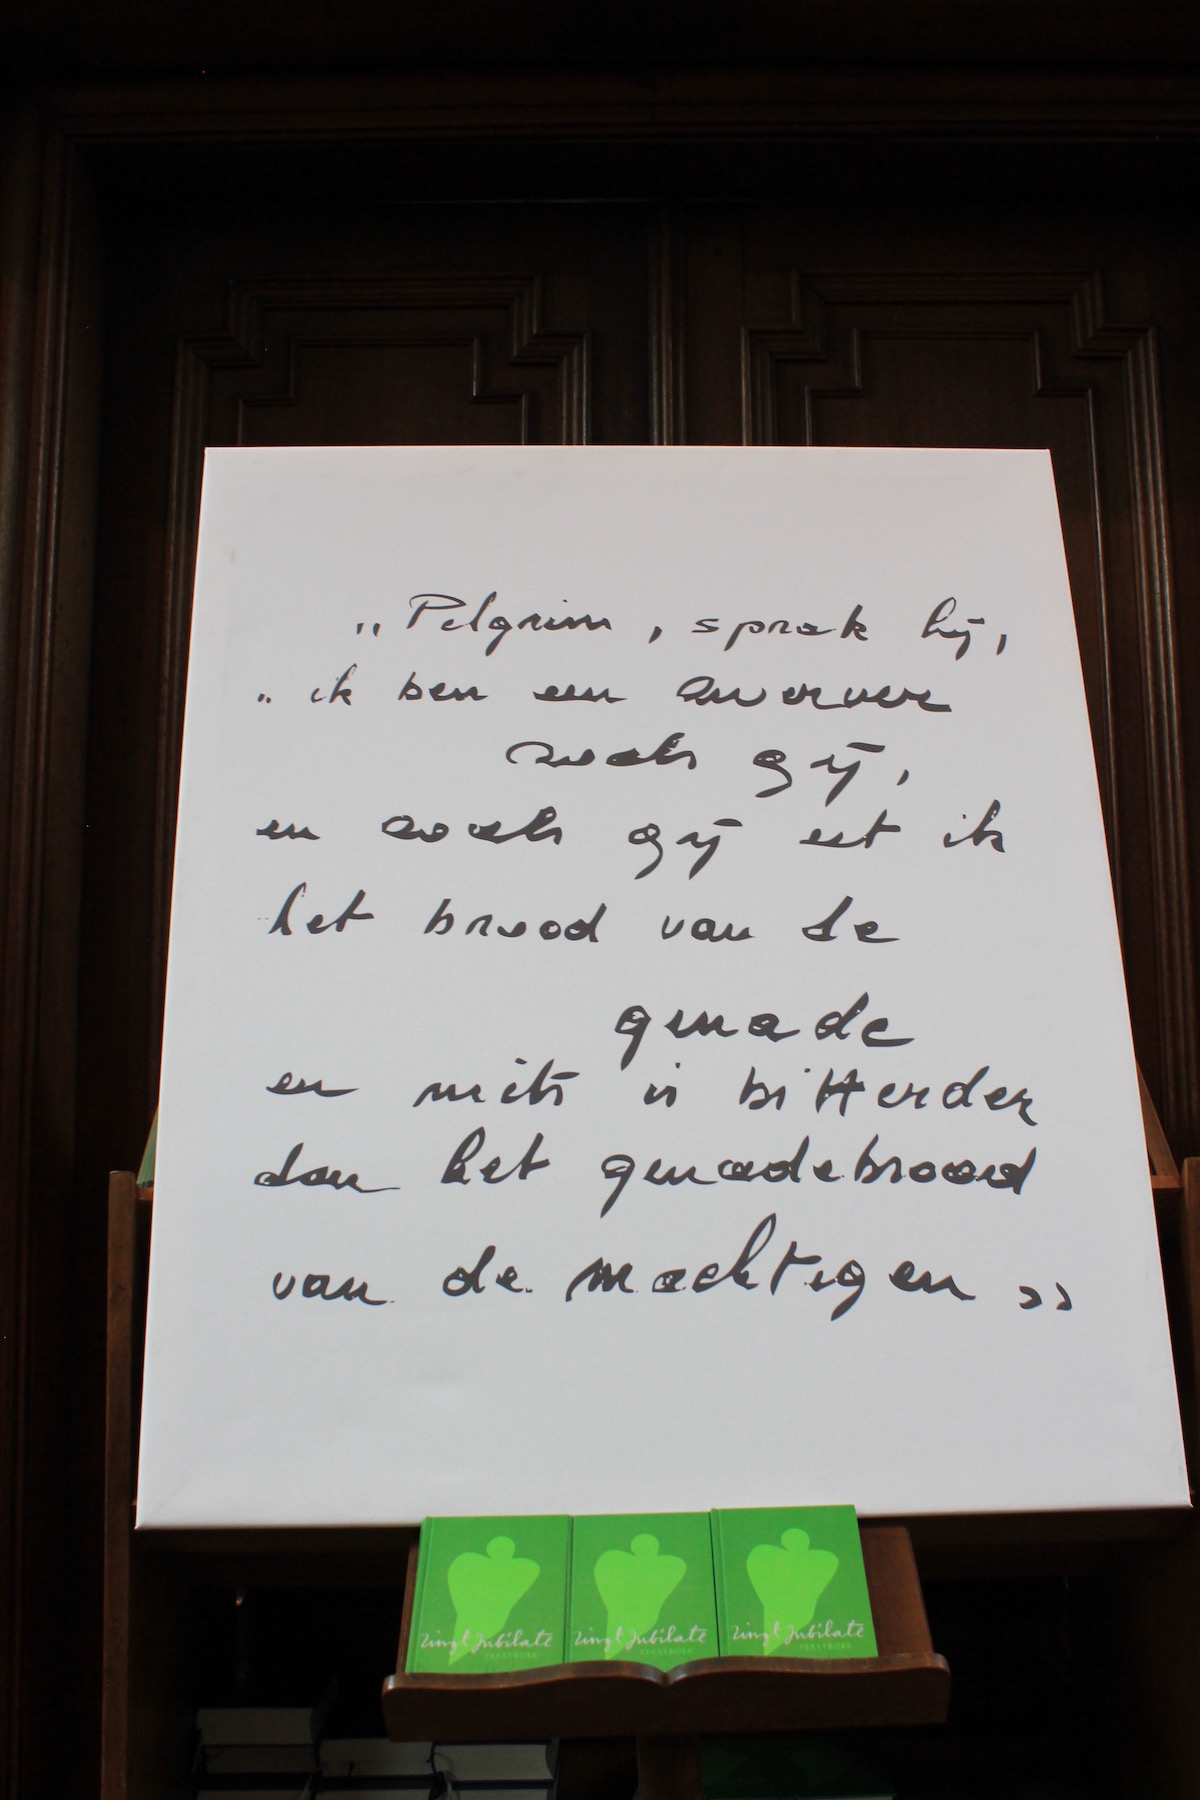 „Pelgrim, sprak hij,
„ik ben een zwerver
zoals gij,
en zoals gij eet ik
het brood van de
genade
en niets is bitterder
dan het genadebrood
van de machtigen”
Zingt Jubilate
TEKSTBOEK
Zingt Jubilate
TEKSTBOEK
Zingt Jubilate
TEKSTBOEK